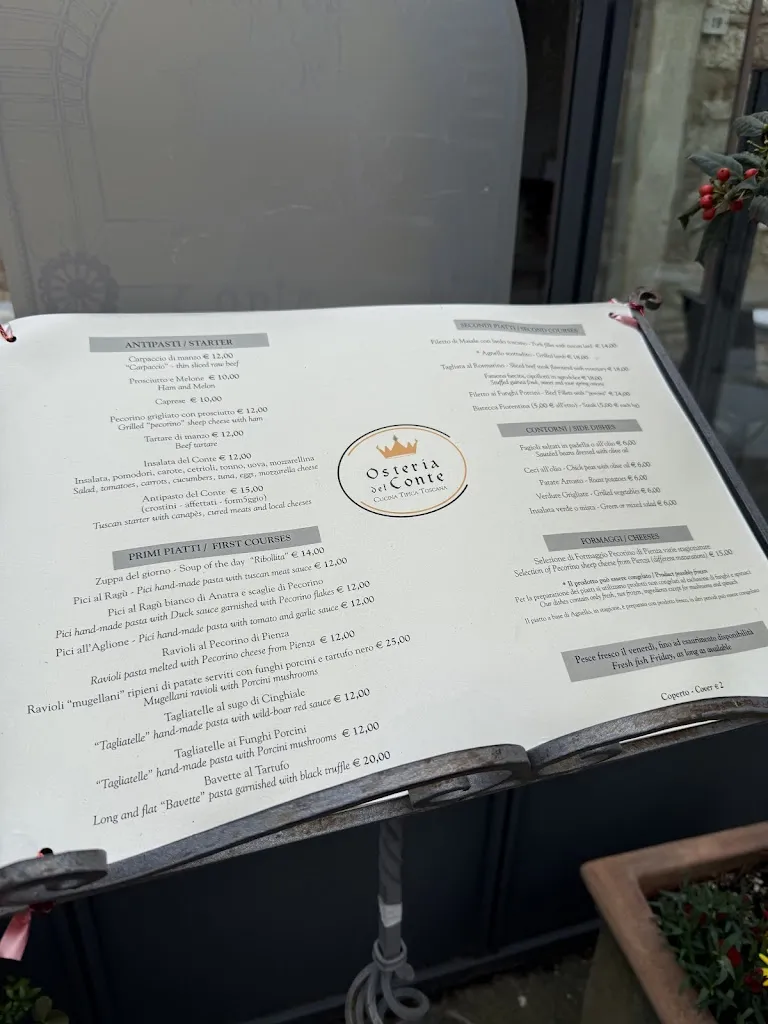 ANTIPASTI / STARTER
Carpaccio di manzo € 12,00
"Carpaccio" - thin sliced raw beef
Prosciutto e Melone € 10,00
Ham and Melon
Caprese € 10,00
Pecorino grigliato con prosciutto € 12,00
Grilled "pecorino" sheep cheese with ham
Tartare di manzo € 12,00
Beef tartare
Insalata del Conte € 12,00
Insalata, pomodori, carote, cetrioli, tonno, uova, mozzarellina
Salad, tomatoes, carrots, cucumbers, tuna, eggs, mozzarella cheese
Antipasto del Conte € 15,00
(crostini - affettati - form5ggio)
Tuscan starter with canapès, cured meats and local cheeses
PRIMI PIATTI / FIRST COURSES
Zuppa del giorno - Soup of the day "Ribollita" € 14,00
Pici al Ragù - Pici hand-made pasta with tuscan meat sauce € 12,00
Pici al Ragù bianco di Anatra e scaglie di Pecorino
Pici hand-made pasta with Duck sauce garnished with Pecorino flakes € 12,00
Pici all'Aglione - Pici hand-made pasta with tomato and garlic sauce € 12,00
Ravioli al Pecorino di Pienza
Ravioli pasta melted with Pecorino cheese from Pienza € 12,00
Ravioli "mugellani" ripieni di patate serviti con funghi porcini e tartufo nero € 25,00
Mugellani ravioli with Porcini mushrooms
Tagliatelle al sugo di Cinghiale
"Tagliatelle" hand-made pasta with wild-boar red sauce € 12,00
Tagliatelle ai Funghi Porcini
"Tagliatelle" hand-made pasta with Porcini mushrooms € 12,00
Bavette al Tartufo
Long and flat "Bavette" pasta garnished with black truffle € 20,00
Osteria
del Conte
CUCINA TIPICA TOSCANA
SECONDI PIATTI / SECOND COURSES
Filetto di Maiale con lardo toscano - Pork fillet with tuscan lard € 14,00
* Agnello scottadito - Grilled lamb € 18,00
Tagliata al Rosmarino - Sliced beef steak flavoured with rosemary € 18,00
Faraona farcita, cipollotti in agrodolce € 18,00
Stuffed guinea fowl, sweet and sour spring onions
Filetto ai Funghi Porcini - Beef Fillets with "porcini" € 24,00
Bistecca Fiorentina (5,00 € all'etto) - Steak (5,00 € each hg)
CONTORNI / SIDE DISHES
Fagioli saltati in padella o all'olio € 6,00
Sautéed beans dressed with olive oil
Ceci all'olio - Chick peas with olive oil € 6,00
Patate Arrosto - Roast potatoes € 6,00
Verdure Grigliate - Grilled vegetables € 6,00
Insalata verde o mista - Green or mixed salad € 6,00
FORMAGGI / CHEESES
Selezione di Formaggio Pecorino di Pienza varie stagionature
Selection of Pecorino sheep cheese from Pienza (different maturations) € 15,00
* Il prodotto può essere congelato / Product possibly frozen
Per la preparazione dei piatti si utilizzano prodotti non congelati ad esclusione di funghi e spinaci
Our dishes contain only fresh, not frozen, ingredients except for mushrooms and spinach
Il piatto a base di Agnello, in stagione, è preparato con prodotto fresco, in altri periodi può essere congelato
Pesce fresco il venerdì, fino ad esaurimento disponibilità
Fresh fish Friday, as long as available
Coperto - Cover € 2
19